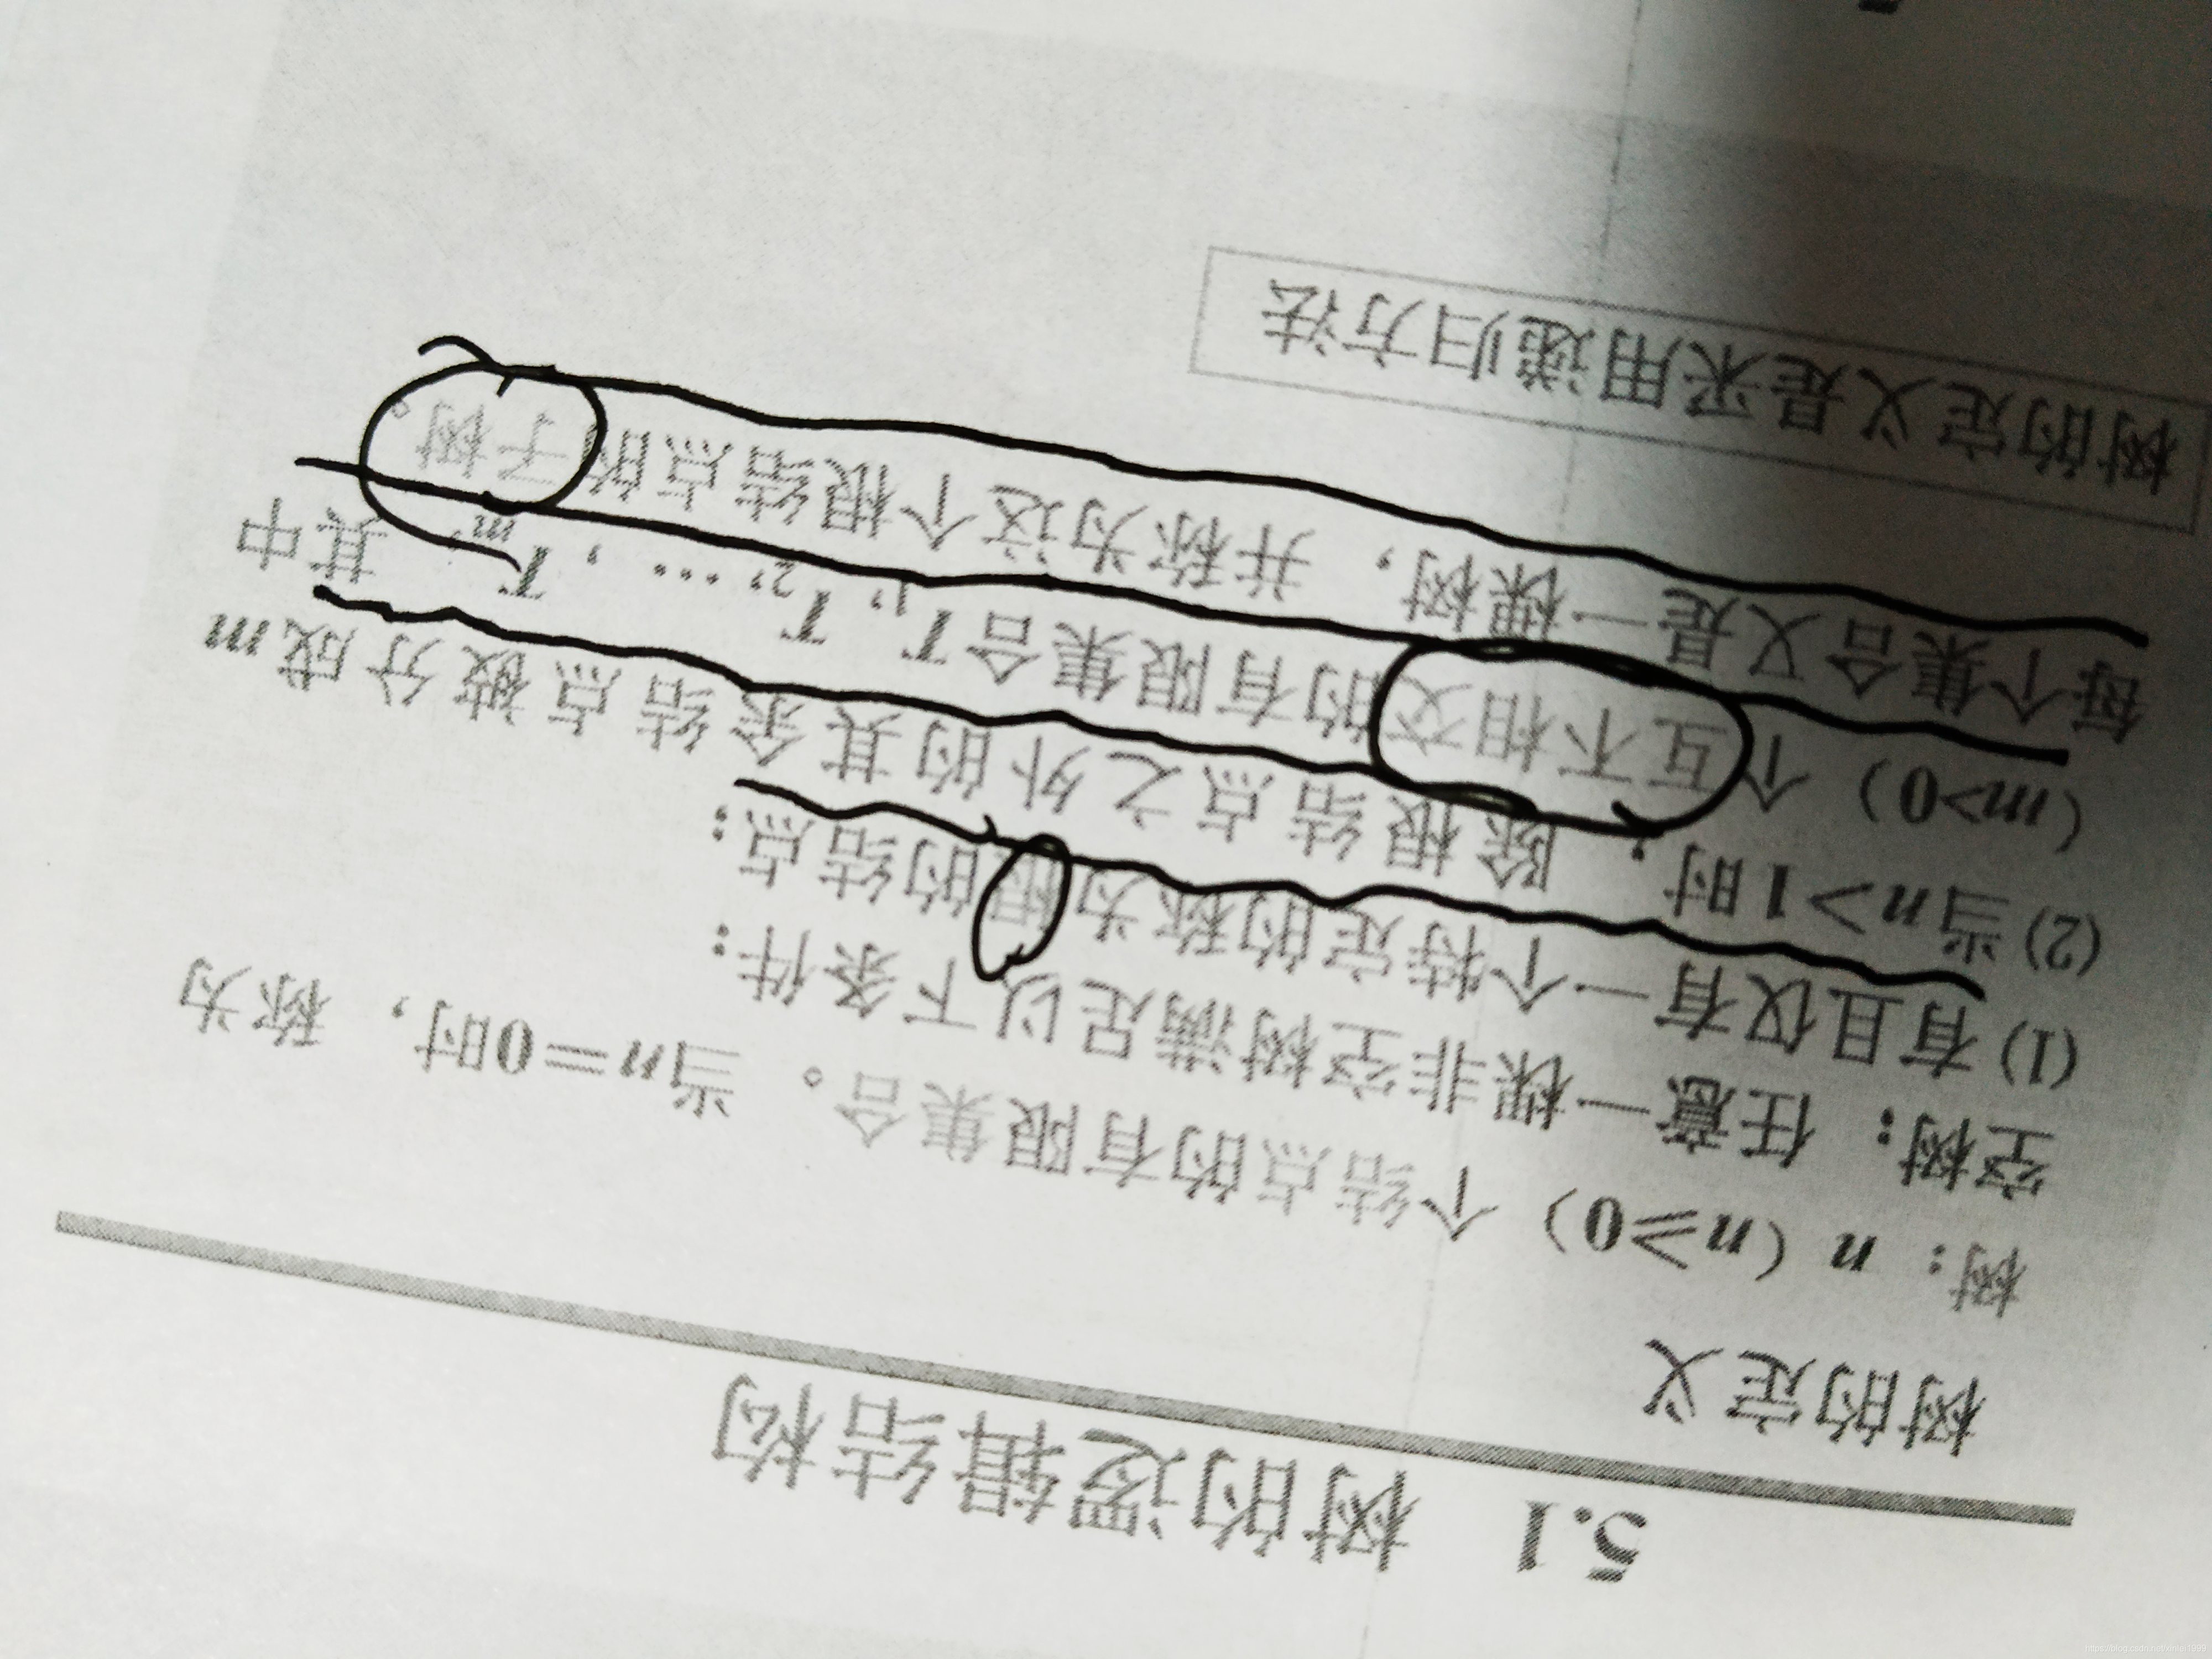 5.1 树的逻辑结构
树的定义
树：n（n≥0）个结点的有限集合。当n＝0时，称为
空树；任意一棵非空树满足以下条件：
(1) 有且仅有一个特定的称为根的结点；
(2) 当n＞1时，除根结点之外的其余结点被分成m
（m>0）个互不相交的有限集合T1,T2,…，Tm，其中
每个集合又是一棵树，并称为这个根结点的子树。
树的定义是采用递归方法